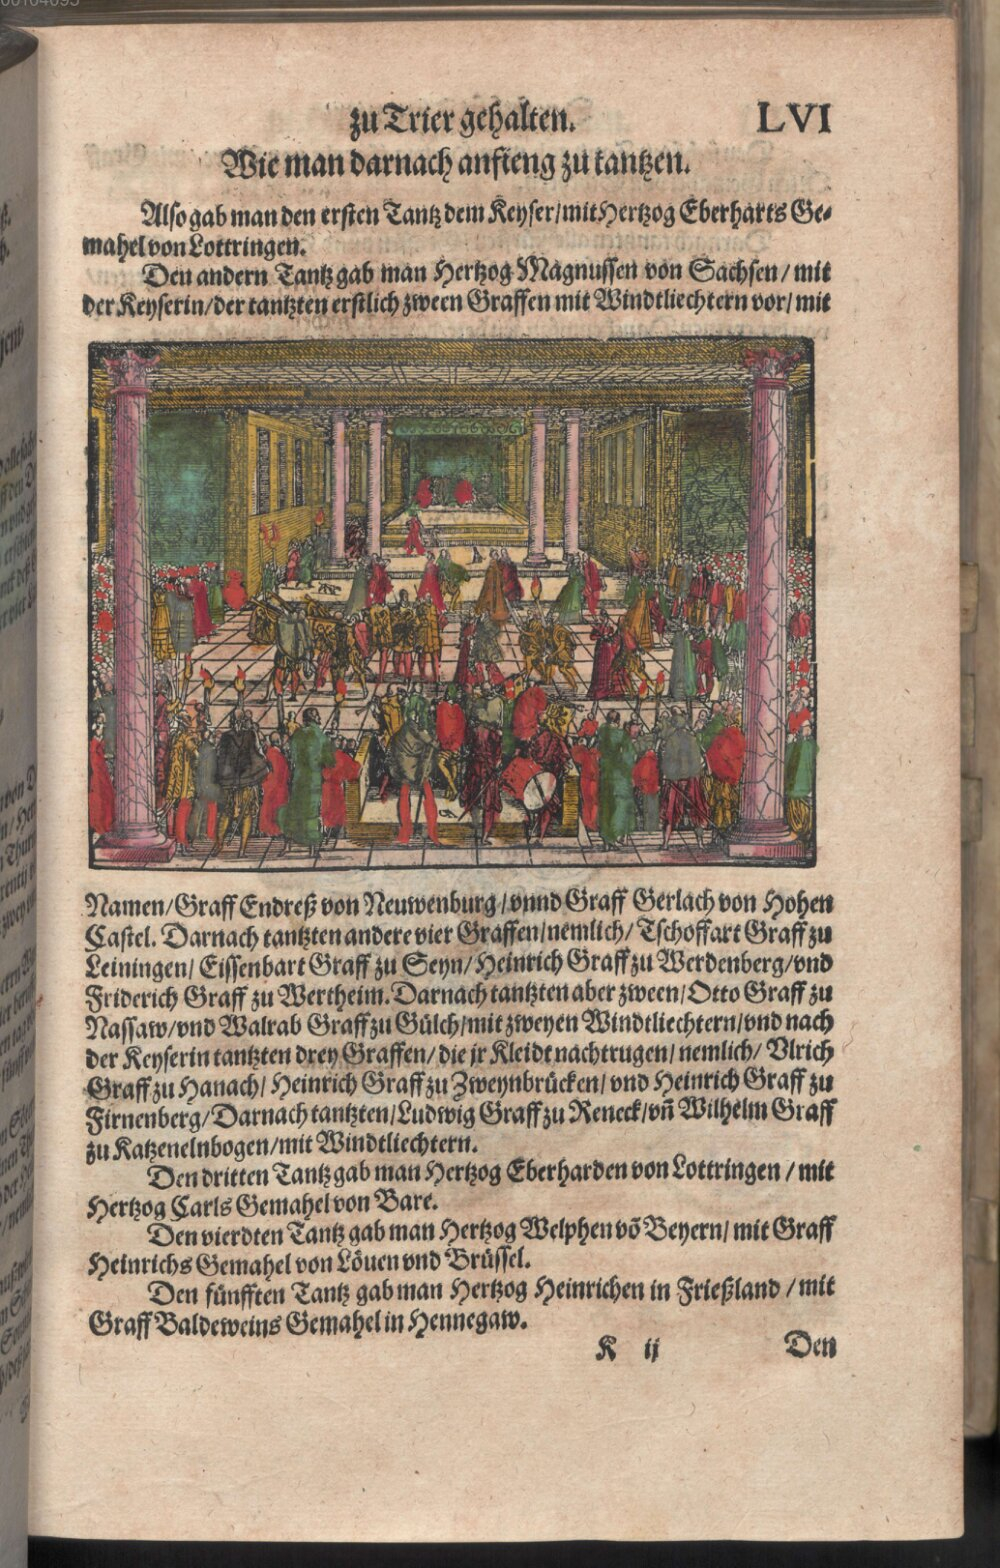 zu Trier gehalten. LVI
Wie man darnach anfieng zu tantzen.
Also gab man den ersten Tantz dem Keyser/mit Hertzog Eberharts Ge-
mahel von Lottringen.
Den andern Tantz gab man Hertzog Magnussen von Sachsen/ mit
der Keyserin/der tantzten erstlich zween Graffen mit Windtliechtern vor/ mit
Namen/Graff Endreß von Neuwenburg/vnnd Graff Gerlach von Hohen
Castel. Darnach tantzten andere vier Graffen/nemlich/ Tschoffart Graff zu
Leiningen/ Eissenbart Graff zu Seyn/Heinrich Graff zu Werdenberg/vnd
Friderich Graff zu Wertheim. Darnach tantzten aber zween/Otto Graff zu
Nassaw/vnd Walrab Graff zu Gülch/mit zweyen Windtliechtern/vnd nach
der Keyserin tantzten drey Graffen/die jr Kleidt nachtrugen/nemlich/ Vlrich
Graff zu Hanach/ Heinrich Graff zu Zweynbrücken/vnd Heinrich Graff zu
Firnenberg/Darnach tantzten/Ludwig Graff zu Reneck/vñ Wilhelm Graff
zu Katzenelnbogen/mit Windtliechtern.
Den dritten Tantz gab man Hertzog Eberharden von Lottringen/ mit
Hertzog Carls Gemahel von Bare.
Den vierdten Tantz gab man Hertzog Welphen võ Beyern/ mit Graff
Heinrichs Gemahel von Löuen vnd Brüssel.
Den fünfften Tantz gab man Hertzog Heinrichen in Frießland / mit
Graff Baldeweins Gemahel in Hennegaw.
K ij Den